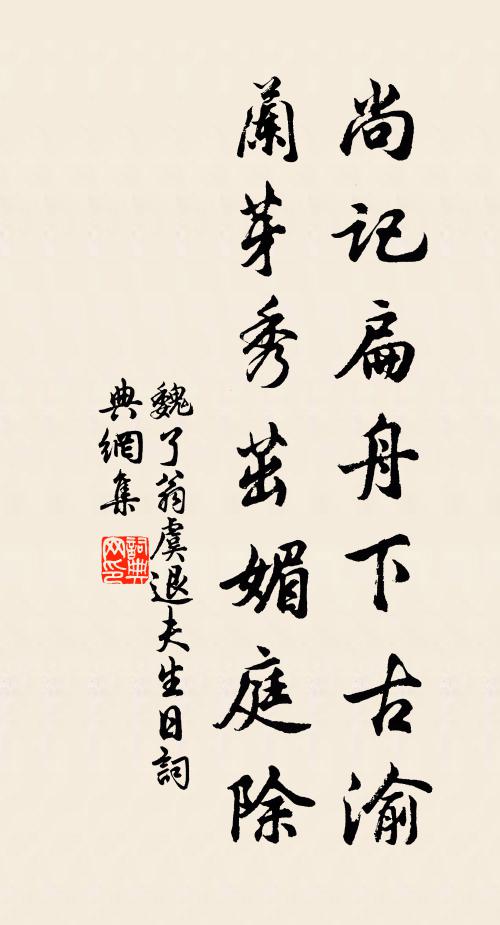 尚記扁舟下古渝
蘭芽秀茁媚庭除
魏了翁虞退夫生日詞
典網集
詞典网印